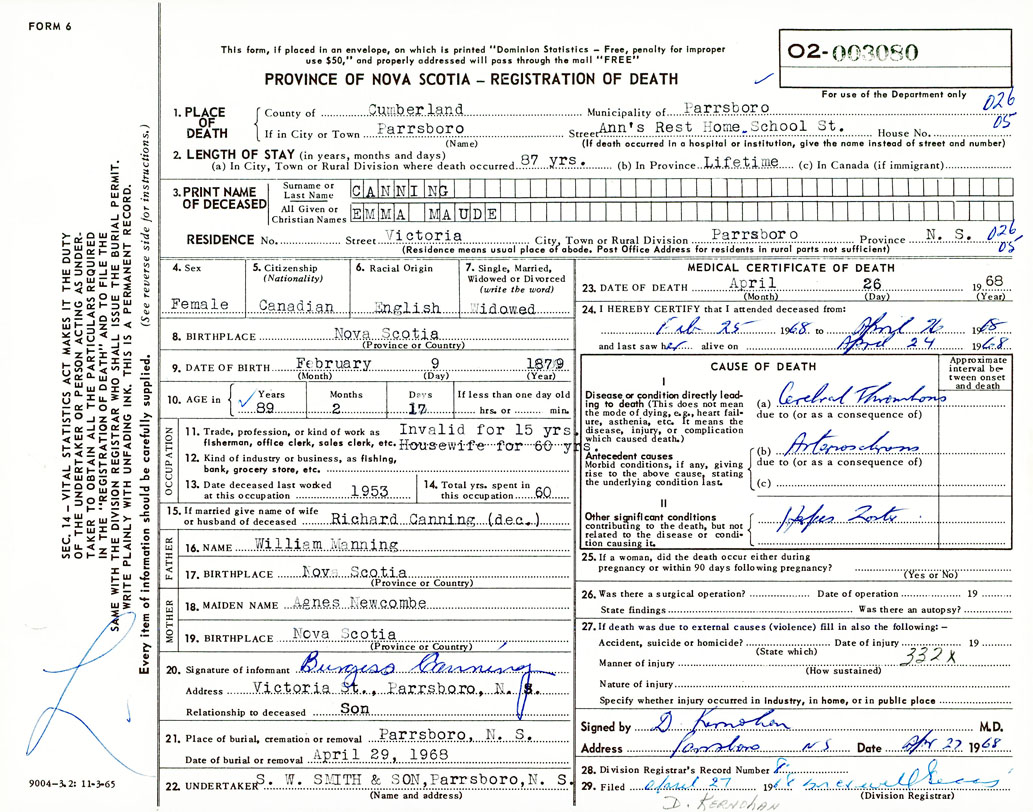 FORM 6
This form, if placed in an envelope, on which is printed "Dominion Statistics – Free, penalty for improper
use $50," and properly addressed will pass through the mail "FREE"
PROVINCE OF NOVA SCOTIA – REGISTRATION OF DEATH
02-003080
For use of the Department only
026
05
1. PLACE OF DEATH
County of Cumberland Municipality of Parrsboro
If in City or Town Parrsboro Street Ann's Rest Home School St. House No.
(Name) (If death occurred in a hospital or institution, give the name instead of street and number)
2. LENGTH OF STAY (in years, months and days)
(a) In City, Town or Rural Division where death occurred 87 yrs. (b) In Province Lifetime (c) In Canada (if immigrant)
3. PRINT NAME OF DECEASED
Surname or Last Name CANNING
All Given or Christian Names EMMA MAUDE
RESIDENCE No. Street Victoria City, Town or Rural Division Parrsboro Province N. S. 026
(Residence means usual place of abode. Post Office Address for residents in rural parts not sufficient) 05
4. Sex
Female
5. Citizenship
(Nationality)
Canadian
6. Racial Origin
English
7. Single, Married,
Widowed or Divorced
(write the word)
Widowed
8. BIRTHPLACE Nova Scotia
(Province or Country)
9. DATE OF BIRTH February 9 1879
(Month) (Day) (Year)
10. AGE in Years Months Days If less than one day old
89 2 17 hrs. or min.
OCCUPATION
11. Trade, profession or kind of work as Invalid for 15 yrs.
fisherman, office clerk, sales clerk, etc. Housewife for 60 yrs.
12. Kind of industry or business, as fishing,
bank, grocery store, etc.
13. Date deceased last worked
at this occupation 1953
14. Total yrs. spent in
this occupation 60
15. If married give name of wife
or husband of deceased Richard Canning (dec.)
FATHER
16. NAME William Manning
17. BIRTHPLACE Nova Scotia
(Province or Country)
MOTHER
18. MAIDEN NAME Agnes Newcombe
19. BIRTHPLACE Nova Scotia
(Province or Country)
20. Signature of informant Burgess Canning
Address Victoria St., Parrsboro, N. S.
Relationship to deceased Son
21. Place of burial, cremation or removal Parrsboro, N. S.
Date of burial or removal April 29, 1968
22. UNDERTAKER S. W. SMITH & SON, Parrsboro, N. S.
(Name and address)
MEDICAL CERTIFICATE OF DEATH
23. DATE OF DEATH April 26 1968
(Month) (Day) (Year)
24. I HEREBY CERTIFY that I attended deceased from:
Feb 25 1968 to April 26 1968
and last saw her alive on April 24 1968
CAUSE OF DEATH
Approximate interval between onset and death
I
Disease or condition directly leading
to death (This does not mean
the mode of dying, e.g., heart failure,
asthenia, etc. It means the
disease, injury, or complication
which caused death.)
(a) Cerebral Thrombosis
due to (or as a consequence of)
Antecedent causes
Morbid conditions, if any, giving
rise to the above cause, stating
the underlying condition last.
(b)
due to (or as a consequence of)
(c)
II
Other significant conditions
contributing to the death, but not
related to the disease or condition
causing it.
Herpes Zoster
25. If a woman, did the death occur either during
pregnancy or within 90 days following pregnancy?
(Yes or No)
26. Was there a surgical operation? Date of operation 19
State findings Was there an autopsy?
27. If death was due to external causes (violence) fill in also the following: –
Accident, suicide or homicide? Date of injury 19
(State which)
332X
Manner of injury
(How sustained)
Nature of injury
Specify whether injury occurred in industry, in home, or in public place
Signed by D. Kernohan M.D.
Address Parrsboro N S Date Apr 27 1968
28. Division Registrar's Record Number 8
29. Filed April 27 1968
(Division Registrar)
D. KERNOHAN
SEC. 14 – VITAL STATISTICS ACT MAKES IT THE DUTY
OF THE UNDERTAKER OR PERSON ACTING AS UNDER-
TAKER TO OBTAIN ALL THE PARTICULARS REQUIRED
IN THE "REGISTRATION OF DEATH" AND TO FILE THE
SAME WITH THE DIVISION REGISTRAR WHO SHALL ISSUE THE BURIAL PERMIT.
WRITE PLAINLY WITH UNFADING INK. THIS IS A PERMANENT RECORD.
Every item of information should be carefully supplied. (See reverse side for instructions.)
9004–3.2: 11-3-65